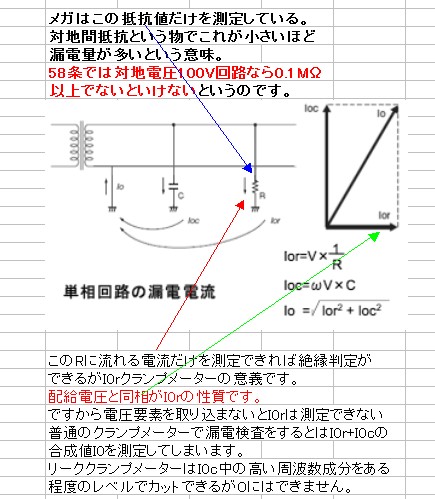 メガはこの抵抗値だけを測定している。
対地間抵抗という物でこれが小さいほど
漏電量が多いという意味。
58条では対地電圧100V回路なら0.1MΩ
以上でないといけないというのです。
Ioc
Io
Ior
Io
C
R
Ioc
Ior
Ior=V×1/R
Ioc=ωV×C
Io =√Ior²+Ioc²
単相回路の漏電電流
このRに流れる電流だけを測定できれば絶縁判定が
できるがI0rクランプメーターの意義です。
配給電圧と同相がI0rの性質です。
ですから電圧要素を取り込まないとI0rは測定できない
普通のクランプメーターで漏電検査をするとI0r+I0cの
合成値I0を測定してしまいます。
リーククランプメーターはI0c中の高い周波数成分をある
程度のレベルでカットできるが0にはできません。